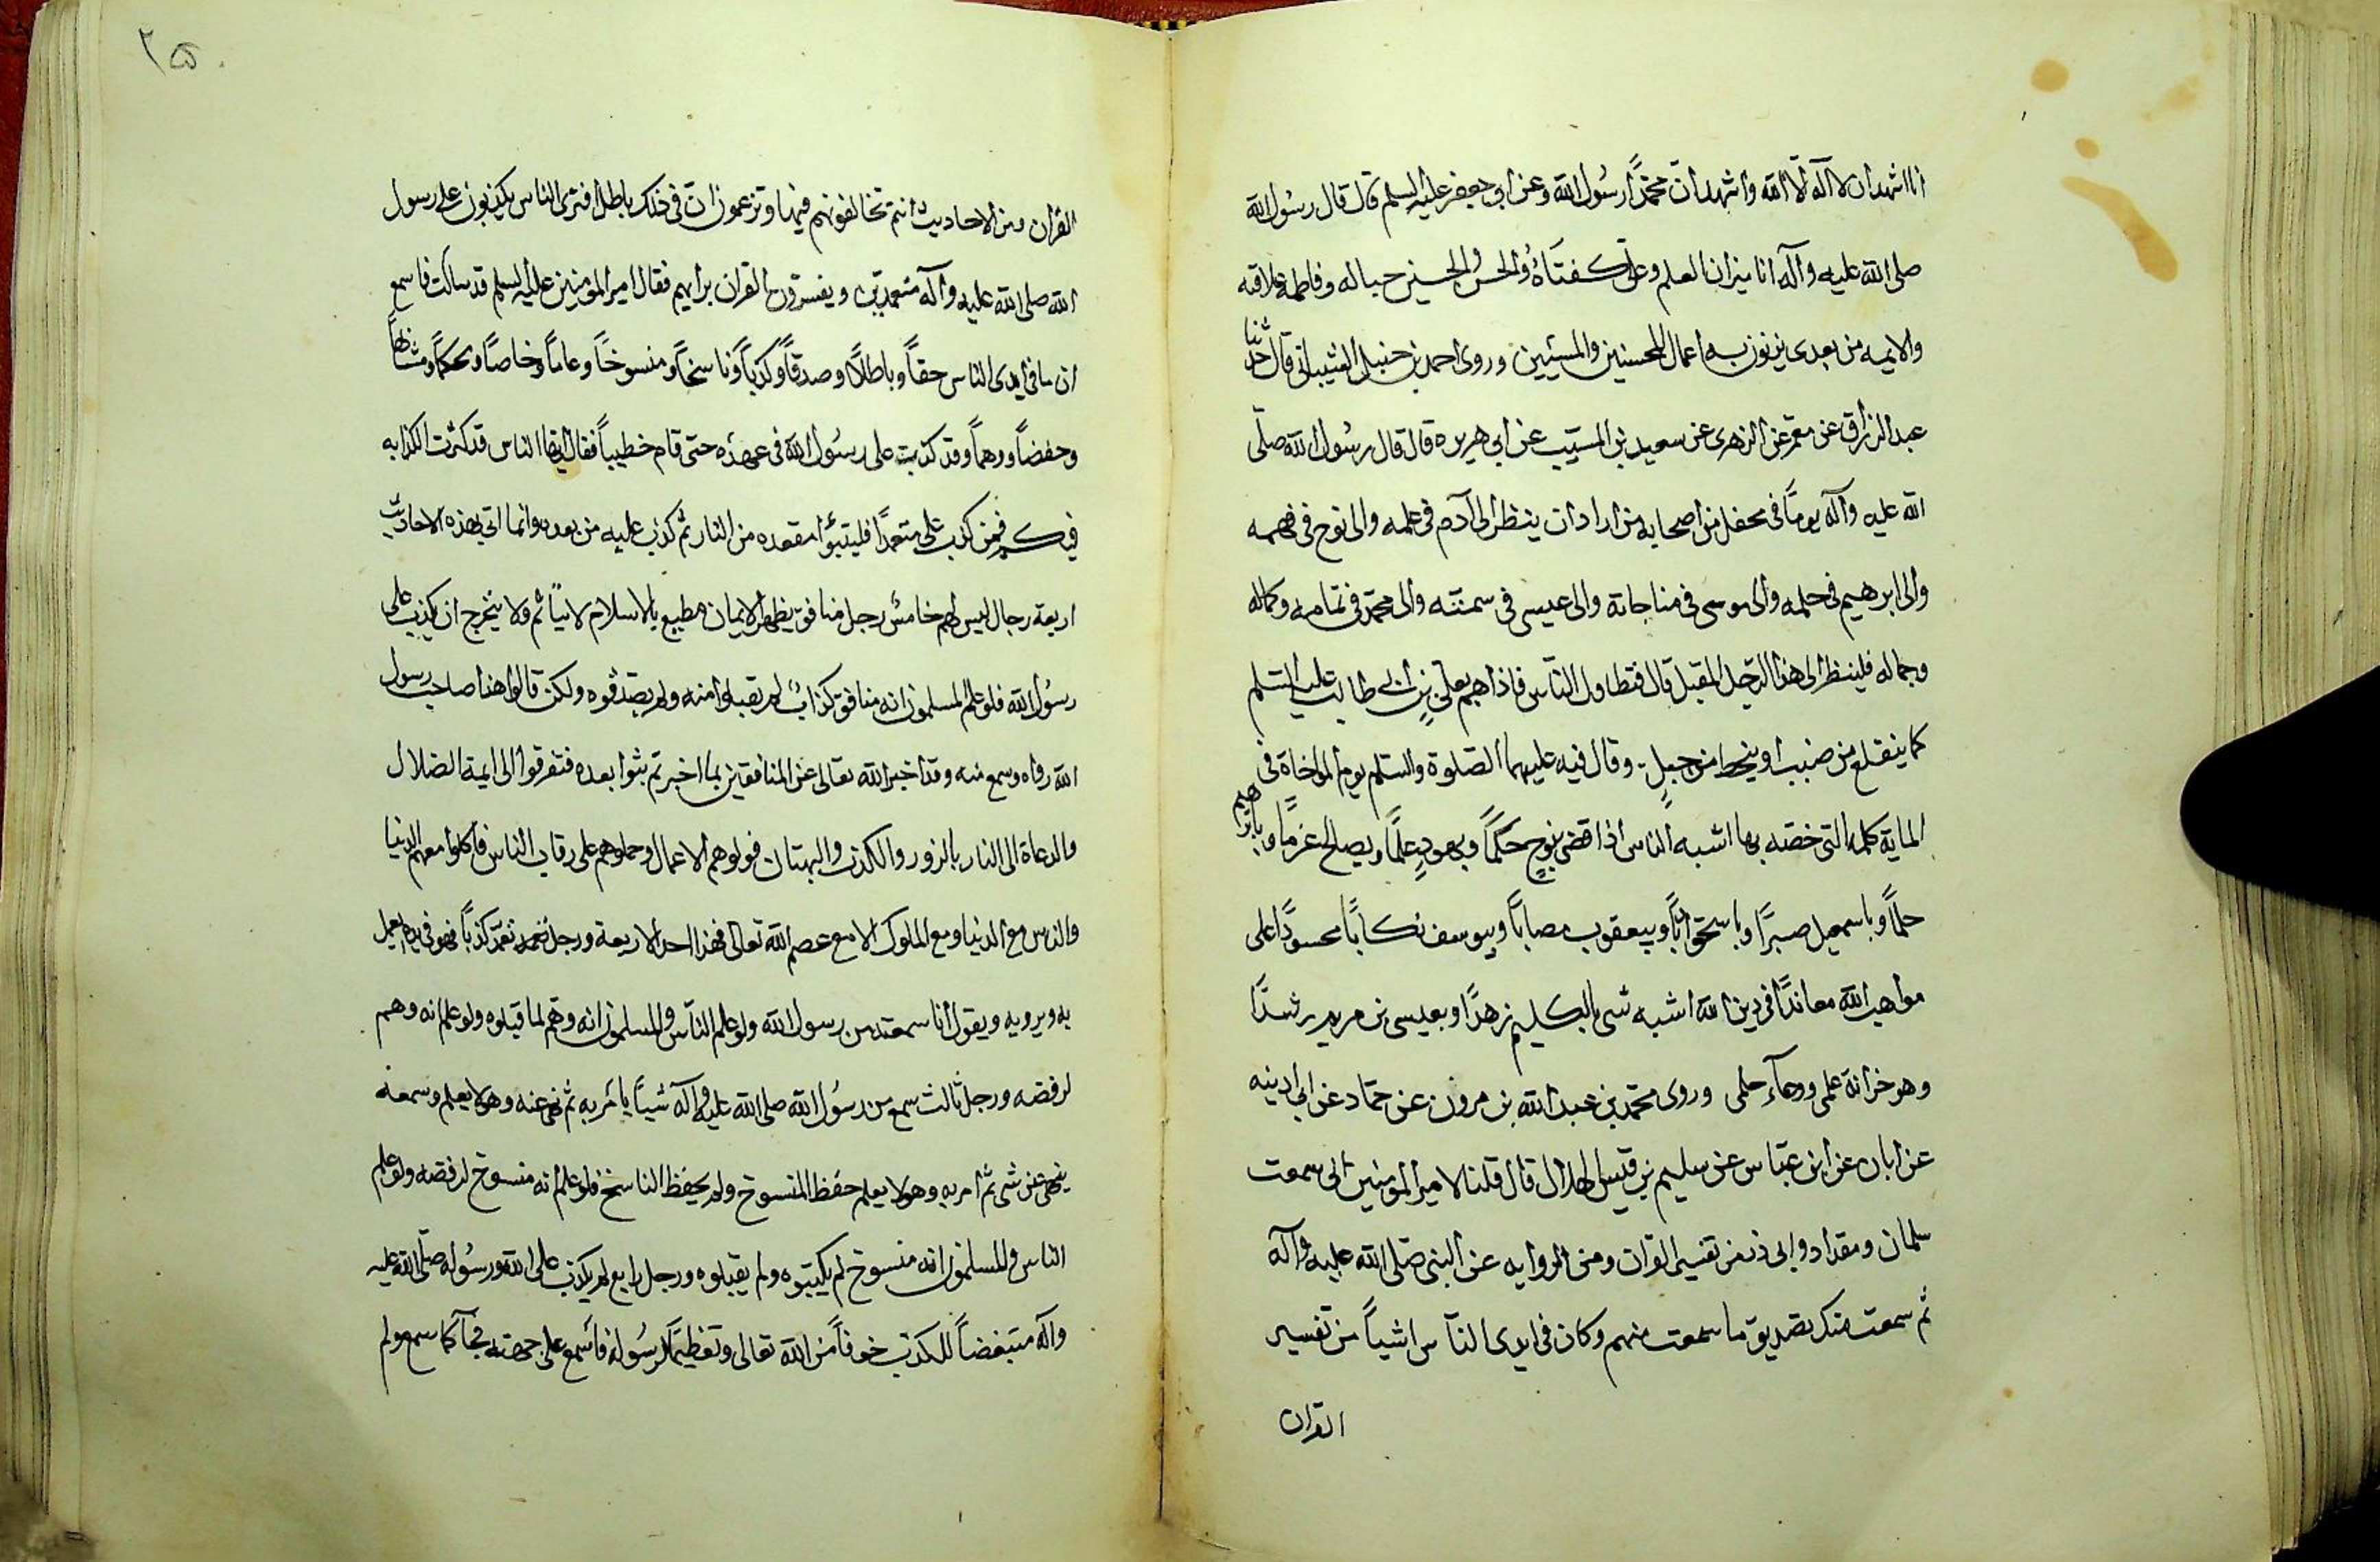 انا اشهد ان لا اله الا الله واشهد ان محمدًا رسُول الله وعن ابي جعفر عليه السلم قال قال رسُول الله
صلى الله عليه وآله انا ميزان العلم وعلى كفتاهُ والحسن والحسين حباله وفاطمة علاقته
والايمه من بعدى يزنون به اعمال المحسنين والمسئين وروى احمد بن حنبل الشيبانى قال حدثنا
عبد الرزاق عن معمر عن الزهرى عن سعيد بن المسيّب عن ابى هريره قال قال رسُول الله صلّى
الله عليه وآله يومًا فى محفل من اصحابه من اراد ان ينظر الى آدم فى علمه والى نوح فى فهمه
والى ابرهيم فى حلمه والى موسى فى مناجاته والى عيسى فى سمته والى محمّد فى تمامه وكماله
وجماله فلينظر الى هذا الرّجل المقبل قال فتطاول النّاس فاذا هم بعلى بن ابى طالب عليه السّلم
كما ينقلع من صبب او ينحط من جبلٍ وقال فيه عليهما الصّلوة والسّلم يوم المواخاة فى
الماية كلمه التى خصّه بها اشبه الناس اذا قضى بنوحٍ حكمًا وبهودٍ علمًا وبصالح عزمًا وبابراهيم
حلمًا وباسمعيل صبرًا وباسحق وبيعقوب مصابًا وبيوسف محسودًا على
مواهب الله معاندًا فى دين الله اشبه شى بالكليم زهدًا وبعيسى بن مريم رشدًا
وهو خزانة علمى ووعآء حلمى وروى محمّد بن عبد الله بن عن حمّاد عن ابى
عن ابان عن ابن عبّاس عن سليم بن قيس الهلالى قال قلنا لامير المؤمنين انى سمعت
سلمان ومقداد وابى ذر من تفسير القران ومن الروايه عن النبى صلّى الله عليه وآله
ثم سمعت منك بصديق ما سمعت منهم وكان فى ايدى النّاس اشياً من تفسير
القران
٢٥٠
القران ومن الاحاديث انتم تخالفونهم فيها وتزعمون انّ فى ذلك باطل افترى الناس يكذبون على رسول
الله صلى الله عليه وآله متعمدين ويفسرون القران برايهم فقال امير المومنين عليه السلم قد سالت فاسمع
ان ما فى ايدى الناس حقاً وباطلاً وصدقاً وكذباً وناسخاً ومنسوخاً وعاماً وخاصاً ومحكماً ومتشابهاً
وحفضاً ووهماً وقد كذبت على رسُول الله فى عهده حتى قام خطيباً فقال ايها الناس قد كثرت الكذابه
فيكم فمن كذب على متعمدًا فليتبوّا مقعده من النار ثم كذب عليه من بعده وانما اتى بهذه الاحاديث
اربعة رجال ليس لهم خامسُ رجل منافق يظهر الايمان مطيع بالاسلام لا يتأثم ولا يتخرج ان يكذب على
رسُول الله فلو علم المسلمون انه منافق كذابُ لم يقبلوا منه ولم يصدقوه ولكن قالوا هذا صاحب رسول
الله رواه وسمع منه وقد اخبر الله تعالى عن المنافقين بما اخبر ثم بثوا بعده فتفرقوا الى ايمة الضلال
والدعاة الى النار بالزور والكذب والبهتان فولوهم الاعمال وحملوهم على رقاب الناس فاكلوا معهم الدنيا
والناس مع الدنيا ومع الملوك الا مع عصم الله تعالى فهذا احد الاربعة ورجل تعمّد كذباً فهو فى يده يعمل
به ويرويه ويقول انا سمعته من رسول الله ولو علم النّاس والمسلمون انه وهَم لما قبلوه ولو علم انه وهم
لرفضه ورجل ثالث سمع من رسُول الله صلى الله عليه وآله شيئاً يامر به ثم نهى عنه وهو لا يعلم وسمعه
ينهى عن شى ثم امر به وهو لا يعلم حفظ المنسوخ ولم يحفظ الناسخ فلو علم انه منسوخ لرفضه ولو علم
الناس والمسلمون انه منسوخ لم يكتبوه ولم يقبلوه ورجل رابع لم يكذب على الله ورسُوله صلّى الله عليه
وآله متبغضاً للكذب خوفاً من الله تعالى وتعظيماً لرسُوله فاسمع على جهته فجآ كما سمع ولم